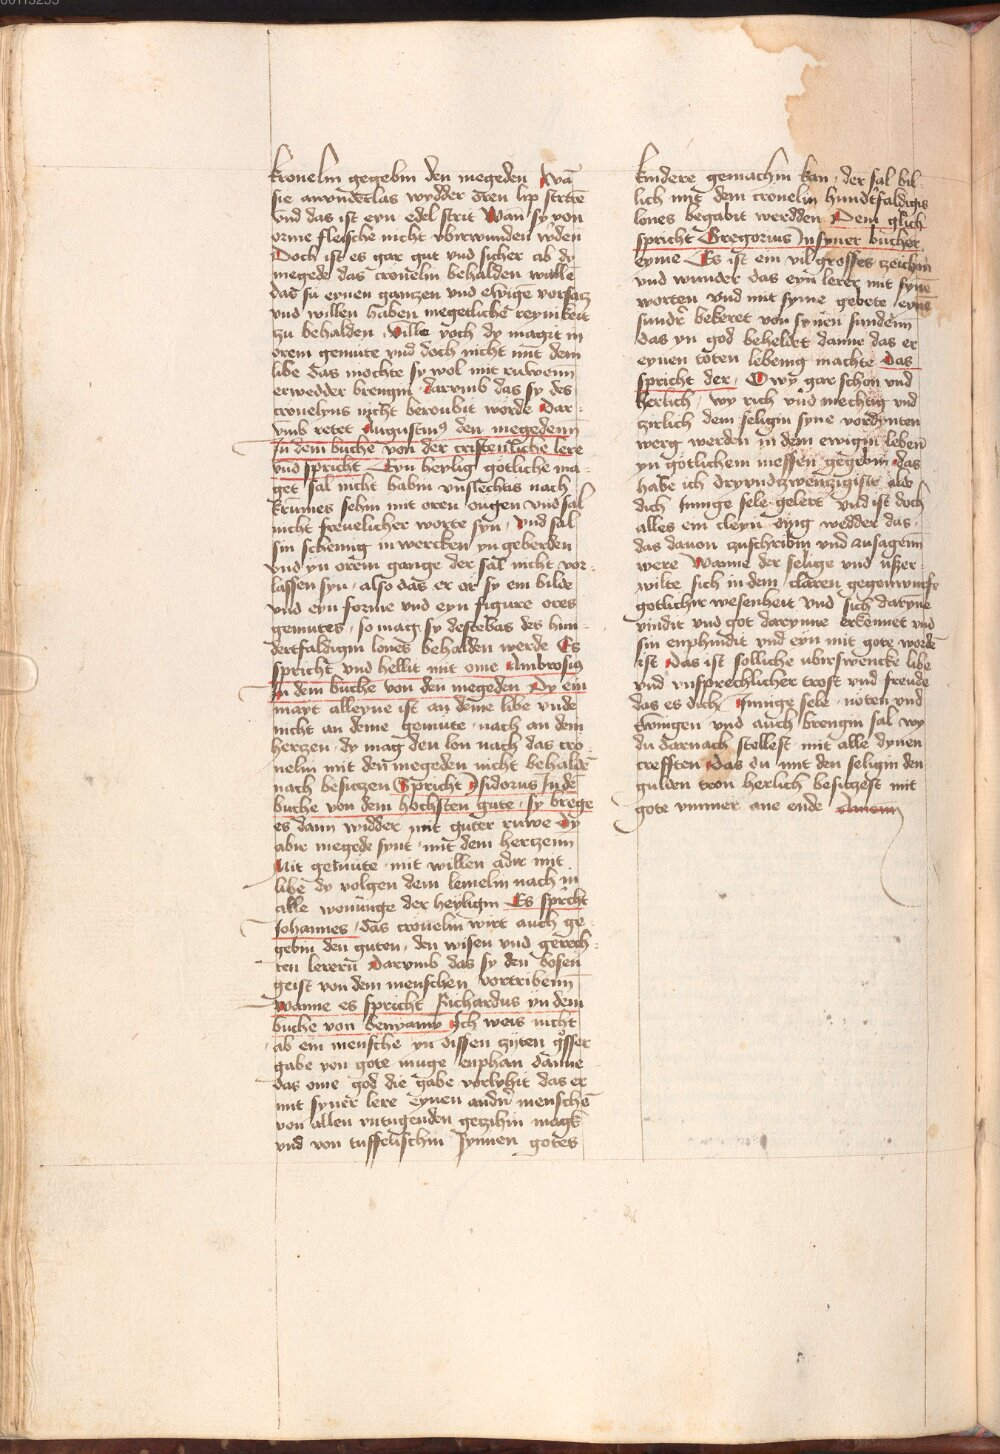 kronelin gegebin den megeden Wā
sie an vnderlas wydder oren lip stretē
vnd das ist eyn edel strit Wan sy von
orme fleische nicht vbirwunden wden
Doch ist es gar gut vnd sicher ab dy
megede das cronelin behalden wulle
das sü eynen gantzen vnd ewigē vorsatz
vnd willen haben megetliche reynikeit
zu behalden Ville yoch dy magit in
orem gemute vnd doch nicht mit dem
libe das mochte sy wol mit ruwenn
erwedder brengin darvmb das sy des
cronelyns nicht beroubit worde Dar
vmb retet Augustinus den megedenn
In dem buche von der cristenliche lere
vnd spricht Eyn heylig gotliche ma
get sal nicht habin vnslechtis nach
krummes sehin mit oren ougen vnd sal
nicht freuelicher worte syn vnd sal
sin schemig in wercken yn geberden
vnd yn orem gange der sal nicht vor
lassen syn also das er or sy ein bilde
vnd eyn forme vnd eyn figure ores
gemutes so mag sy destebas des hun
dertfaldigin lones behalden werde Es
spricht vnd hellit mit ome Ambrosius
In dem buche von den megeden Dy ein
mayt alleyne ist an deme libe vnde
nicht an deme gemute nach an dem
hertzen dy mag den lon nach das cro
nelin mit den megeden nicht behaldē
nach besitzen Spricht Isidorus In dē
buche von dem hochsten gute sy brēge
es dann widder mit guter ruwe Dy
abir megede synt mit dem hertzenn
Mit gemute mit willen adir mit
libe dy volgen dem lemelin nach in
alle wonunge der heyligin Es spricht
Johannes das cronelin wirt auch ge
gebin den guten den wisen vnd gerech
ten lerern Darvmb das sy den bosen
geist von dem menschen vortribenn
Wanne es spricht Richardus yn dem
buche von benyamin Ich weis nicht
ab ein mensche yn dissen zyten gosser
gabe von gote muge enphan danne
das ome god die gabe vorlyhit das er
mit syner lere eynen andir menschē
von allen vntugenden gezihin magk
vnd von tuffelischin synnen gotes
kindere gemachin kan der sal bil
lich mit dem cronelin hundtfaldigis
lones begabit werdden Dem glich
spricht Gregorius In syner bucher
eyme Es ist ein vil grosses zeichin
vnd wunder das eyn lerer mit synē
worten vnd mit syme gebete eynē
sundr bekeret von synen sundenn
das yn god beheldet danne das er
eynen toten lebenig machte Das
spricht der O wy gar schon vnd
herlich wy rich vnd mechtig vnd
zirlich dem seligin syne vordynten
werg werden in dem ewigin leben
yn gotlichem messen gegebin das
habe ich dryvndzwenzigiste aldo
dich Innige sele gelert vnd ist doch
alles ein cleyn ding wedder das
das dauon zuschribin vnd zusagenn
were Wanne der selige vnd vszer
wilte sich in dem claren gegenwurfe
gotlichir wesenheit vnd sich darynne
vindit vnd got dareynne erkennet vnd
sin enphindit vnd eyn mit gote wordē
ist Das ist solliche vbirswencke libe
vnd vnsprechlicher trost vnd freude
das es dich Innige sele noten vnd
twingen vnd auch brengin sal wy
du darnach stellest mit alle dynen
crefften das du mit den seligin den
gulden tron herlich besitzest mit
gote vmmer ane ende Amenn